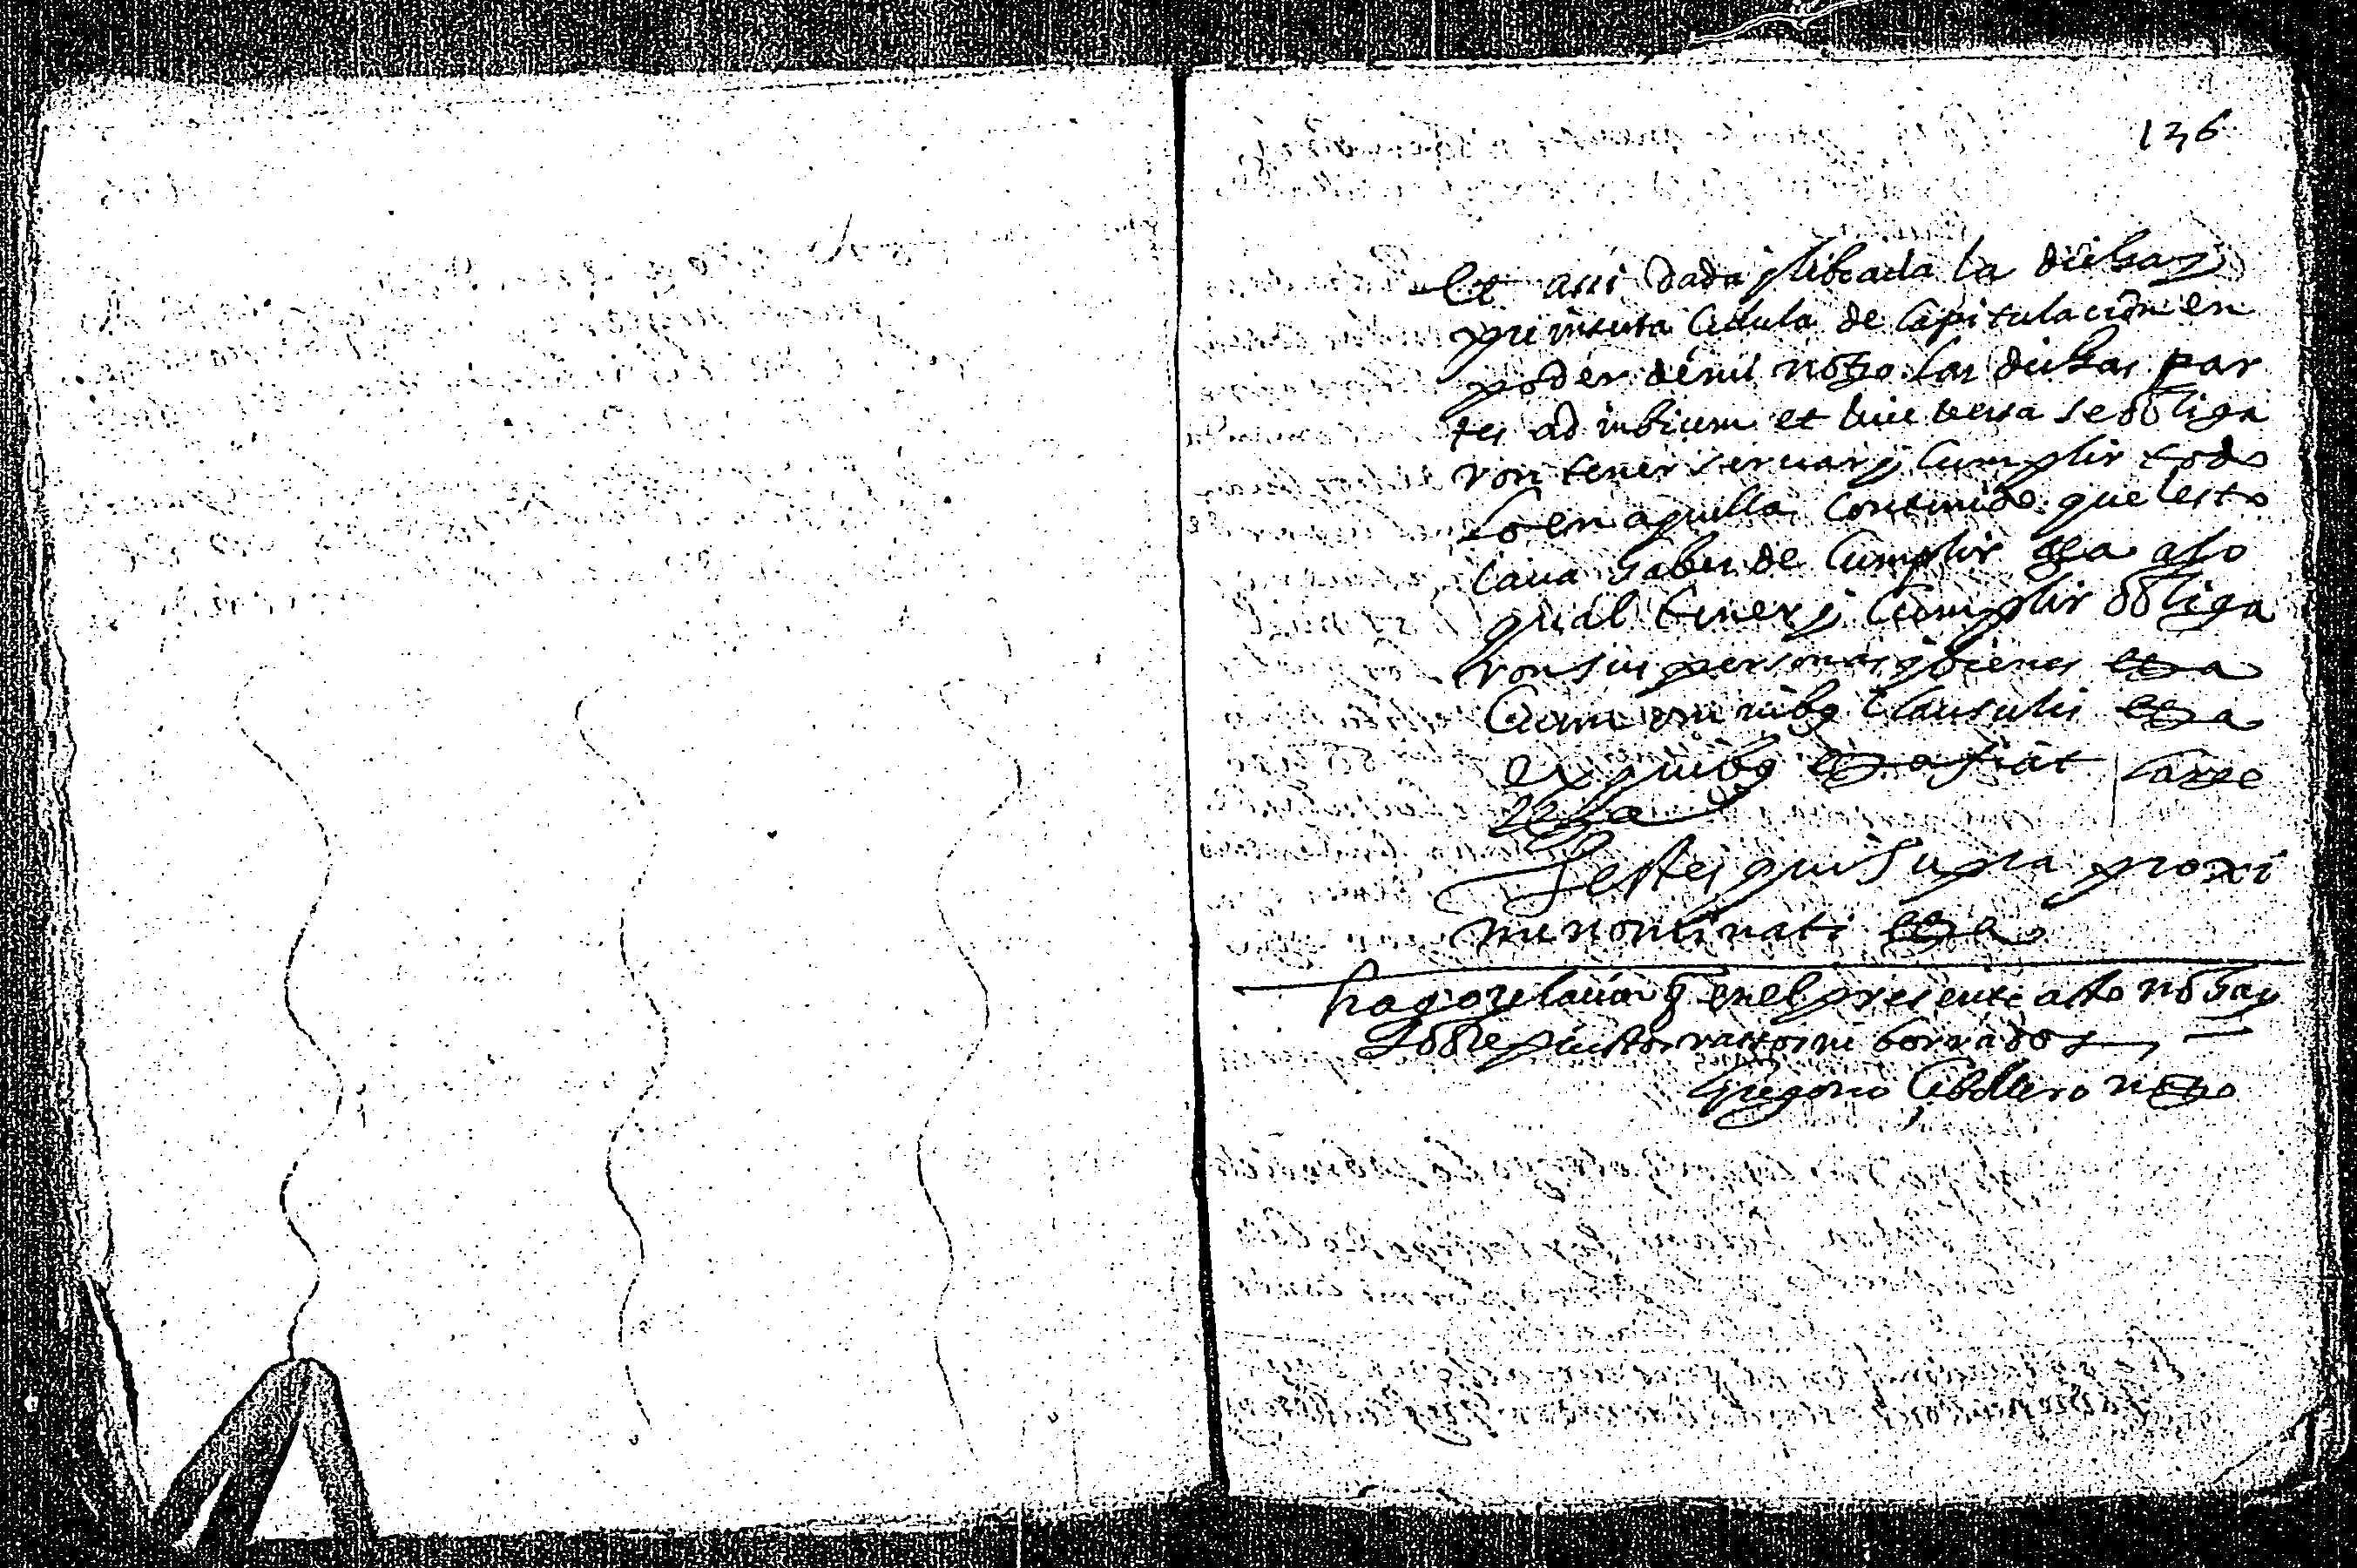 136
Et assi dada y librada la dicha y
preinserta cedula de Capitulacion en
poder de mi not.o las dichas par
tes ad inbicem et vice versa se obliga
ron tener servar y cumplir todo
lo en aquella contenido que les to
cava haber de cumplir etca a lo
qual tener y cumplir obliga
ron sus personas y bienes etca
Cum omnibq clausulis etca
ex quibq etca fiat large
Testes qui supra proxi
me nominati etca
hago relacion q en el presente acto no hay
sobrepuestos rassos ni borrados =
Gregorio Cebollero not.o